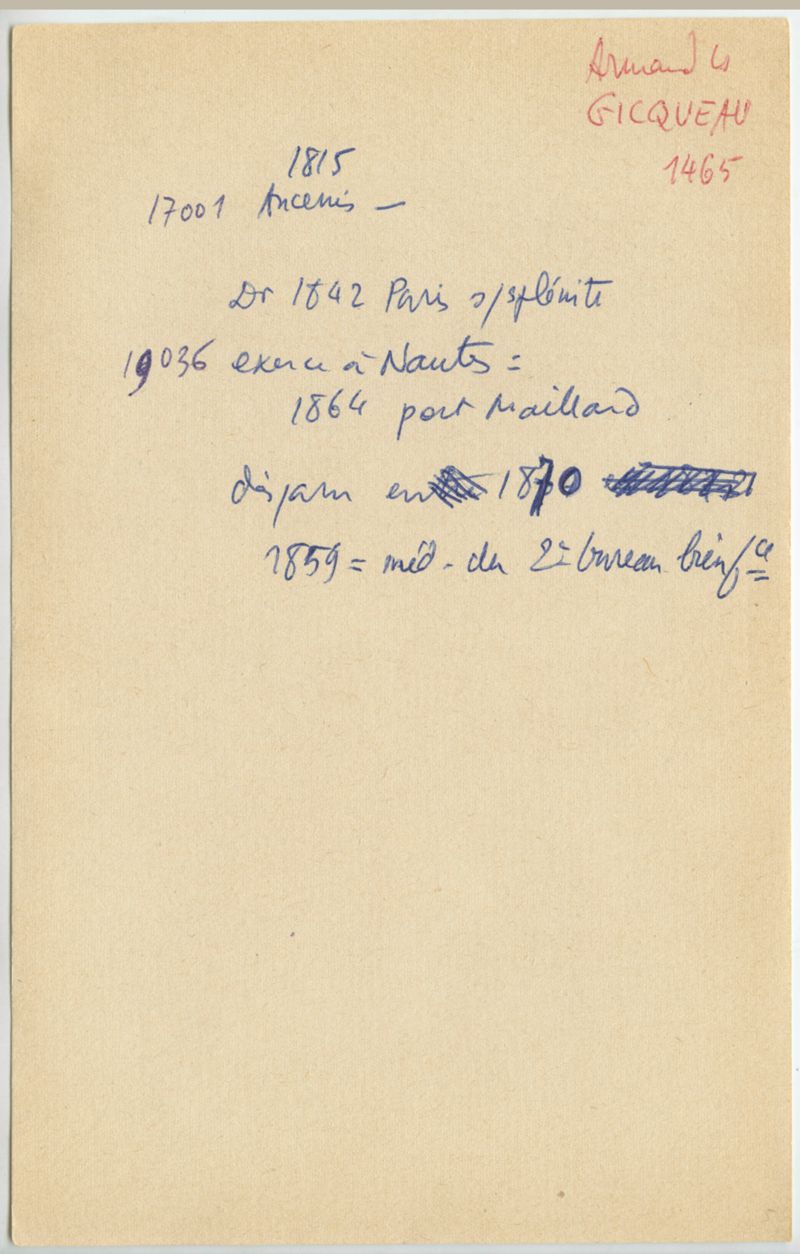 Armand Ls
GICQUEAU
1465
1815
17001 Ancenis —
Dr 1842 Paris s/splénite
19036 exerce à Nantes =
1864 port Maillard
disparu en 1870
1859 = méd. du 2e bureau bienfce